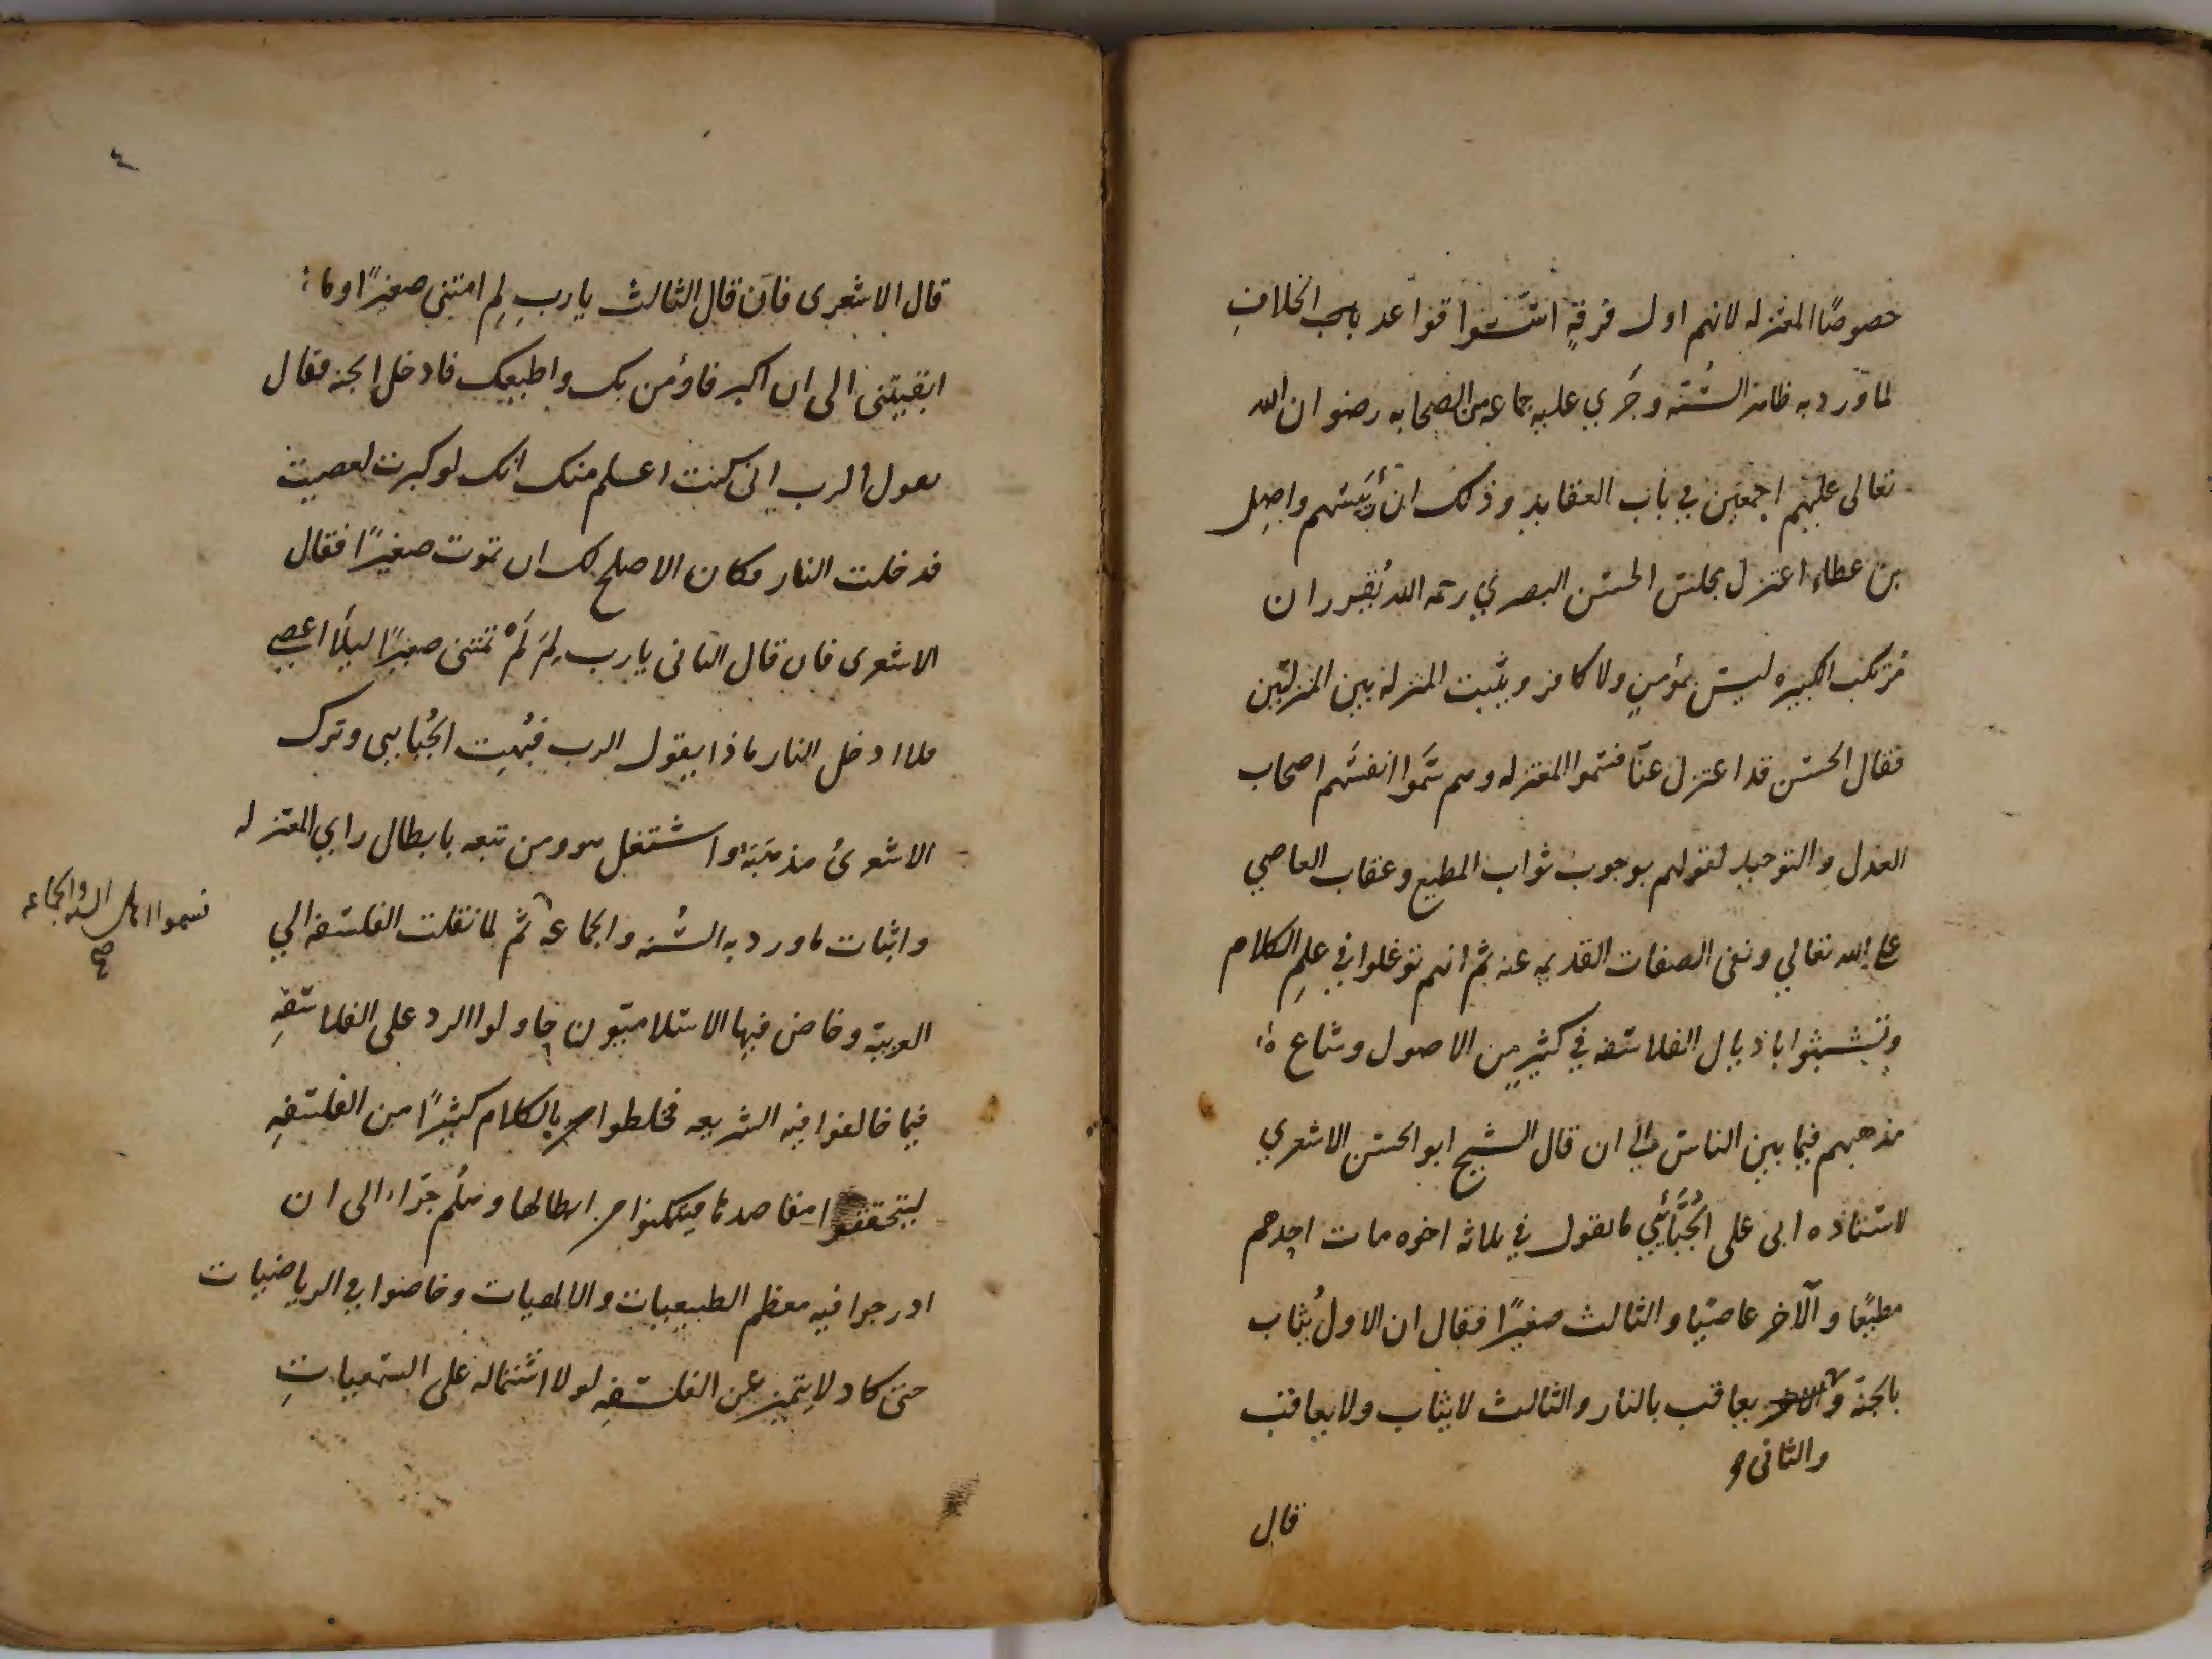 خصوصًا المعتزله لانهم اول فرقةٍ اسّسوا قواعد باب الخلافِ
لما ورد به ظاهر السُّنّه وجَري عليه جماعه من الصحابه رضوان الله
تعالى عليهم اجمعين في باب العقايد وذلك ان رئيسهم واصِل
بن عطاء اعتزل مجلس الحسن البصري رحمه الله يُقرر ان
مُرتكب الكبيره ليس بمؤمنٍ ولا كافر ويثبت المنزلة بين المنزلتين
فقال الحسن قد اعتزل عنّا فسّموا المعتزله وهم سَمّوا انفسَهم اصحاب
العدل والتوحيد لقولهم بوجوب ثواب المطيع وعقاب العاصي
على الله تعالي ونفى الصفات القديمه عنه ثم انهم توغلوا في علمِ الكلام
وتشبثوا باذيال الفلاسفه في كثيرٍ من الاصول وشاع
مذهبهم فيما بين الناس الي ان قال الشيخ ابو الحسن الاشعري
لاستاذه ابى على الجُبَّائيّ ما تقول في ثلاثه اخوه مات احدهم
مطيعًا والآخر عاصيًا والثالث صغيرًا فقال ان الاولُ يُثاب
بالجنة والاخر يعاقب بالنار والثالث لا يثاب ولا يعاقب
والثانى
قال
٤
قال الاشعرى فان قال الثالث يا ربِ لِم امتنى صغيرًا وما
ابقيتنى الى ان اكبر فاؤمن بك واطيعك فادخل الجنه فقال
يقول الرب انى كنت اعلم منك انك لو كبرت لعصيت
فدخلت النار فكان الاصلح لك ان تموت صغيرًا فقال
الاشعرى فان قال الثانى يا رب لِمَ لَمْ تمتنى صغيرًا ليلّا اعصي
فلا ادخل النار ماذا يقول الرب فبُهِت الجُبايى وترك
الاشعرىُ مذهبَهَ واشتغل هو ومن تبعه بابطال راي المعتزله
واثبات ما ورد به السُنه والجماعه ثم لما نقلت الفلسفه الي
فسموا اهل السنه والجماعه
صح
العربيّة وخاض فيها الاسلاميّون حاولوا الرد على الفلاسَفةِ
فيما خالفوا فيه الشريعه فخلطوا بالكلام كثيرًا من الفلسَفهِ
ليتحققوا مقاصدها فيتمكنوا من ابطالها وهلُم جَرّا الى ان
ادرجوا فيه معظم الطبيعيات والالهيات وخاضوا في الرياضيات
حتى كاد لا يتميز عن الفلسَفهِ لولا اشتماله على السَمعياتِ